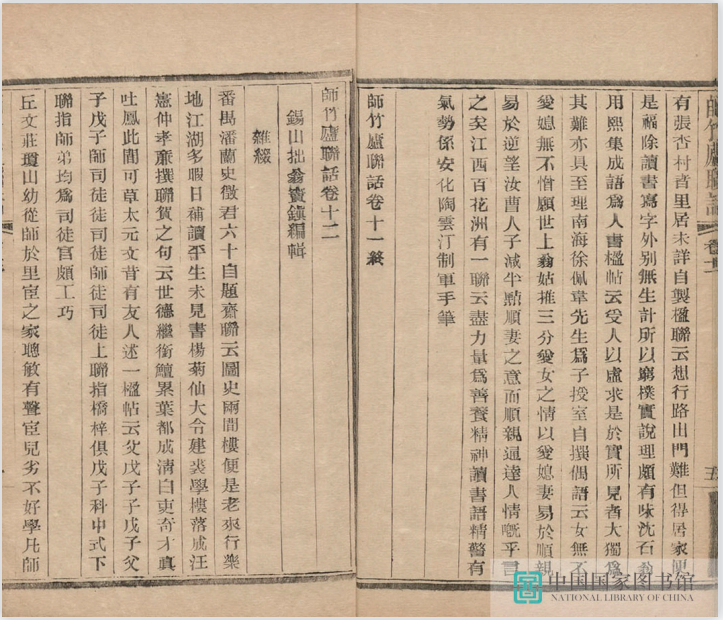 師竹廬聯話 卷十一
五
有張杏村者里居未詳自製楹聯云想行路出門難但得居家便
是福除讀書寫字外別無生計所以窮樸實說理頗有味沈石翁
用熙集成語爲人書楹帖云受人以虛求是於實所見者大獨爲
其難亦具至理南海徐佩韋先生爲子授室自撰偶語云女無不
愛媳無不憎願世上翁姑推三分愛女之情以愛媳妻易於順親
易於逆望汝曹人子減半點順妻之意而順親通達人情嘅乎言
之矣江西百花洲有一聯云盡力量爲善養精神讀書語精警有
氣勢係安化陶雲汀制軍手筆
師竹廬聯話卷十一終
師竹廬聯話卷十二
錫山拙翁竇鎮編輯
雜綴
番禺潘蘭史徵君六十自題齋聯云圖史兩間樓便是老來行樂
地江湖多暇日補讀平生未見書楊菊仙大令建裘學樓落成汪
憲仲孝廉撰聯賀之句云世德繼銜鱣累葉都成清白吏奇才眞
吐鳳此間可草太元文昔有友人述一楹帖云父戊子子戊子父
子戊子師司徒徒司徒師徒司徒上聯指橋梓俱戊子科中式下
聯指師弟均爲司徒官頗工巧
丘文莊瓊山幼從師於里宦之家聰敏有聲宦兒劣不好學凡師
中国国家图书馆
NATIONAL LIBRARY OF CHINA